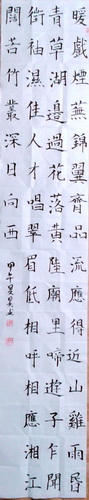 暖戲煙蕪錦翼齊品流應得近山雞雨昏
青草湖邊過花落黃陵廟里啼遊子乍聞
袖濕佳人才唱翠眉低相呼相應湘江
闊苦竹叢深日向西
甲午夏